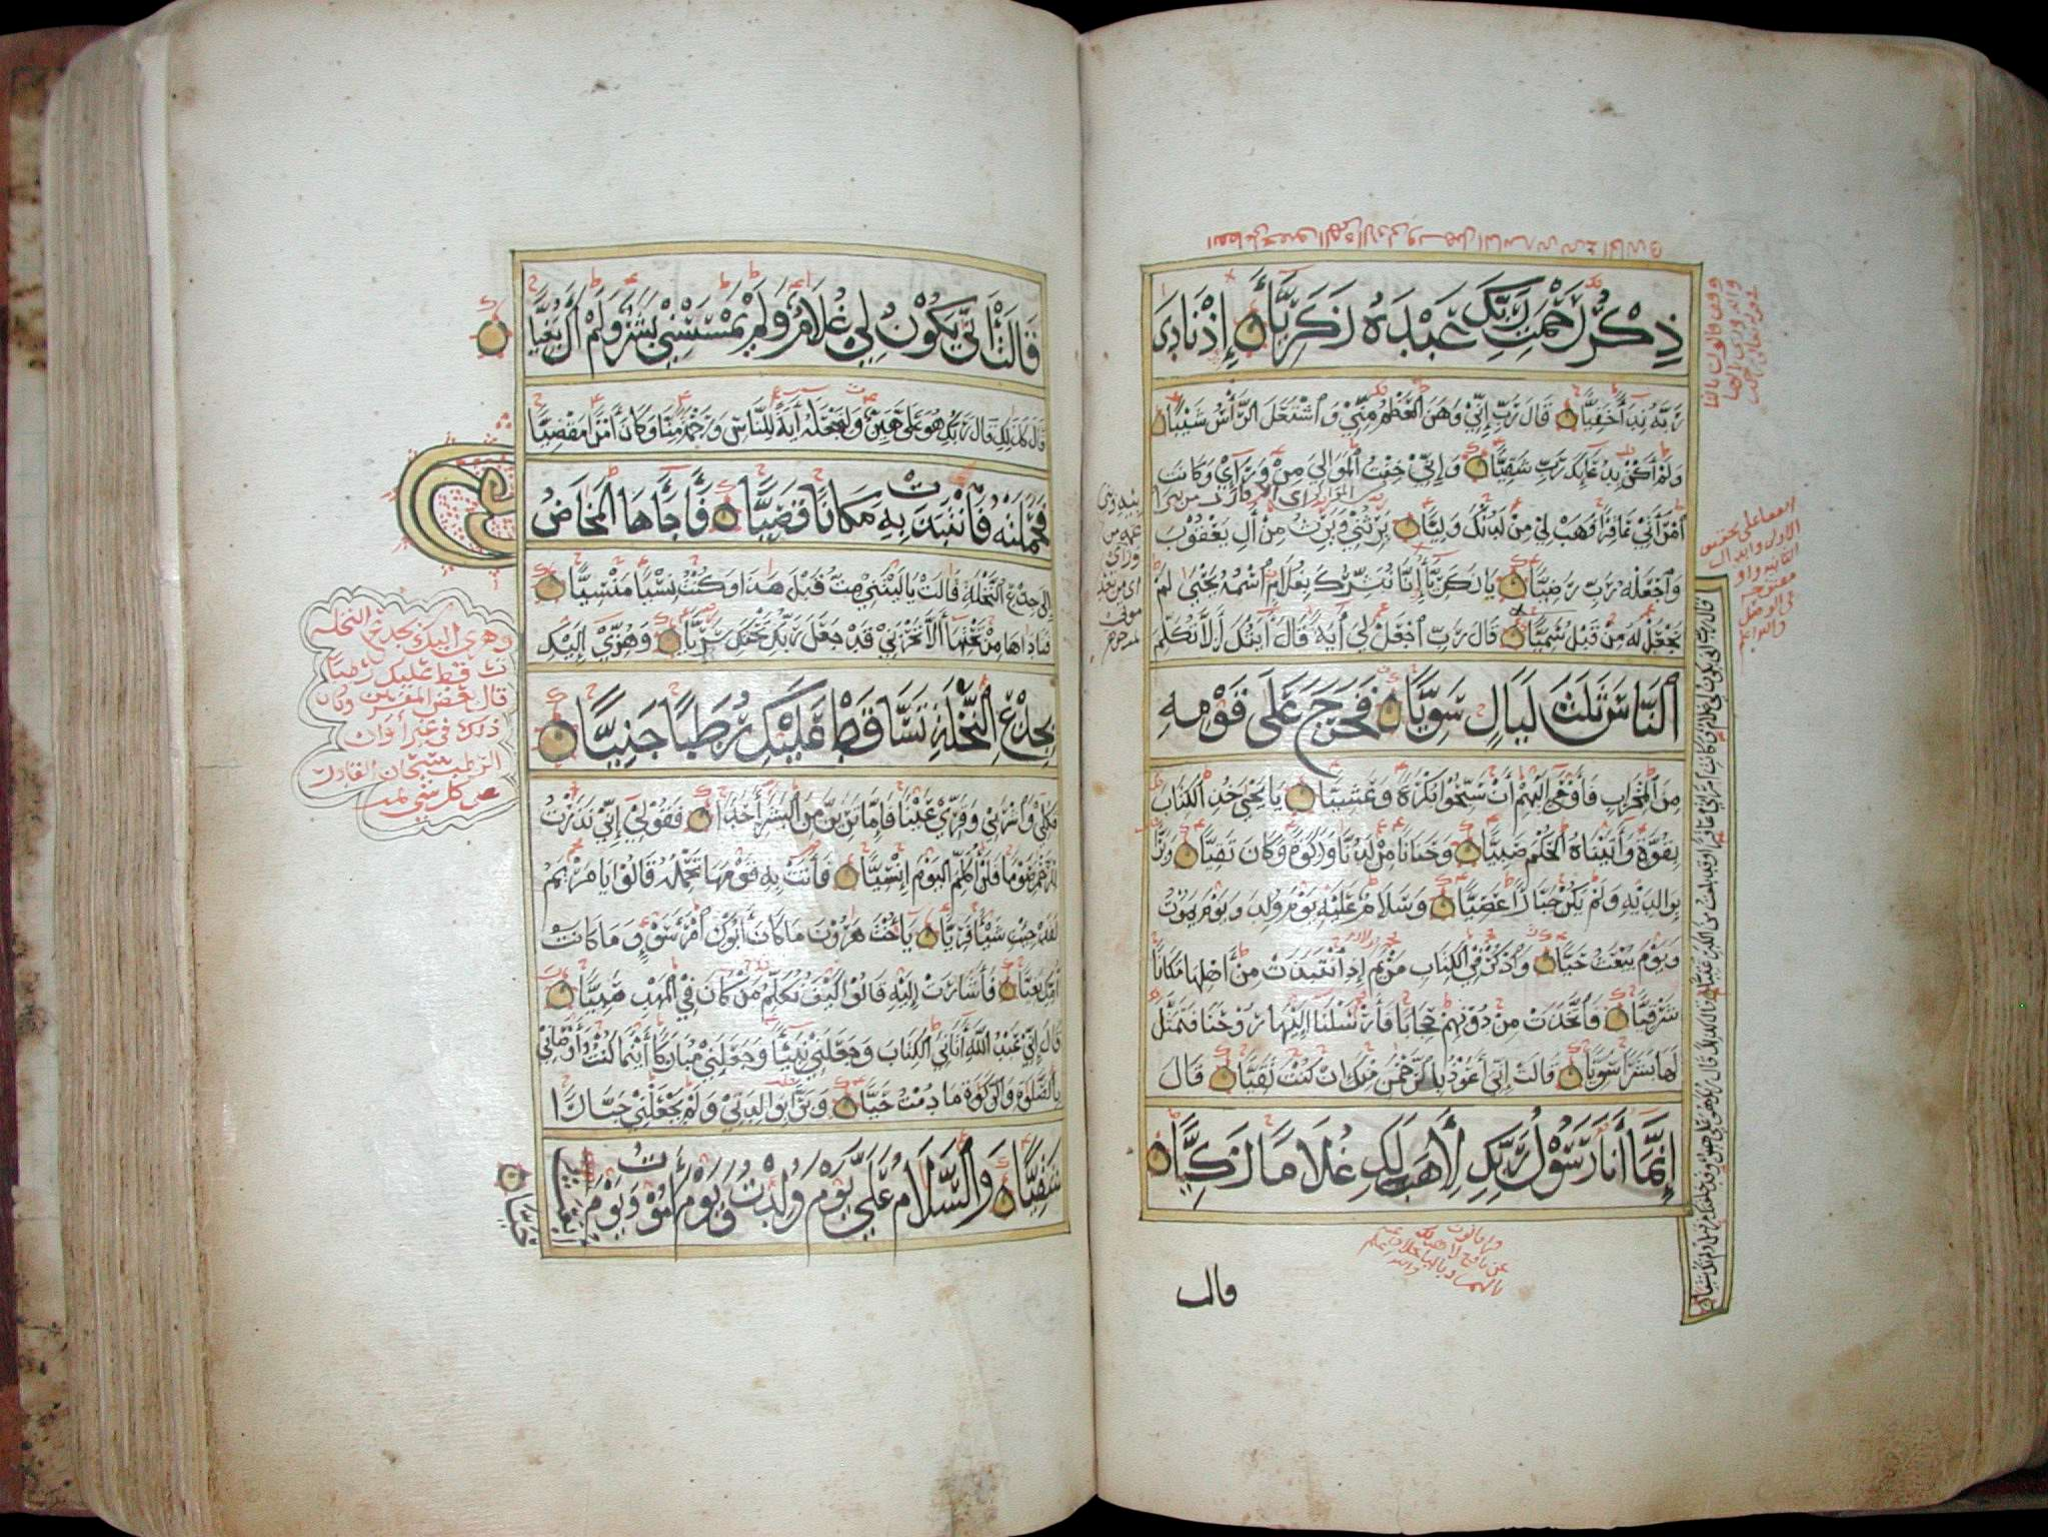 ذِكْرُ رَحْمَتِ رَبِّكَ عَبْدَهُ زَكَرِيَّا إِذْ نَادَى
رَبَّهُ نِدَاءً خَفِيًّا قَالَ رَبِّ إِنِّي وَهَنَ الْعَظْمُ مِنِّي وَاشْتَعَلَ الرَّأْسُ شَيْبًا
وَلَمْ أَكُنْ بِدُعَائِكَ رَبِّ شَقِيًّا وَإِنِّي خِفْتُ الْمَوَالِيَ مِنْ وَرَائِي وَكَانَتِ
امْرَأَتِي عَاقِرًا فَهَبْ لِي مِنْ لَدُنْكَ وَلِيًّا يَرِثُنِي وَيَرِثُ مِنْ آلِ يَعْقُوبَ
وَاجْعَلْهُ رَبِّ رَضِيًّا يَا زَكَرِيَّا إِنَّا نُبَشِّرُكَ بِغُلَامٍ اسْمُهُ يَحْيَى لَمْ
نَجْعَلْ لَهُ مِنْ قَبْلُ سَمِيًّا قَالَ رَبِّ اجْعَلْ لِي آيَةً قَالَ آيَتُكَ أَلَّا تُكَلِّمَ
النَّاسَ ثَلَثَ لَيَالٍ سَوِيًّا فَخَرَجَ عَلَى قَوْمِهِ
مِنَ الْمِحْرَابِ فَأَوْحَى إِلَيْهِمْ أَنْ سَبِّحُوا بُكْرَةً وَعَشِيًّا يَا يَحْيَى خُذِ الْكِتَابَ
بِقُوَّةٍ وَآتَيْنَاهُ الْحُكْمَ صَبِيًّا وَحَنَانًا مِنْ لَدُنَّا وَزَكَوةً وَكَانَ تَقِيًّا وَبَرًّا
بِوَالِدَيْهِ وَلَمْ يَكُنْ جَبَّارًا عَصِيًّا وَسَلَامٌ عَلَيْهِ يَوْمَ وُلِدَ وَيَوْمَ يَمُوتُ
وَيَوْمَ يُبْعَثُ حَيًّا وَاذْكُرْ فِي الْكِتَابِ مَرْيَمَ إِذِ انْتَبَذَتْ مِنْ أَهْلِهَا مَكَانًا
شَرْقِيًّا فَاتَّخَذَتْ مِنْ دُونِهِمْ حِجَابًا فَأَرْسَلْنَا إِلَيْهَا رُوحَنَا فَتَمَثَّلَ
لَهَا بَشَرًا سَوِيًّا قَالَتْ إِنِّي أَعُوذُ بِالرَّحْمَنِ مِنْكَ إِنْ كُنْتَ تَقِيًّا قَالَ
إِنَّمَا أَنَا رَسُولُ رَبِّكِ لِأَهَبَ لَكِ غُلَامًا زَكِيًّا
قال رب أنى يكون لي غلام وكانت امرأتي عاقرا وقد بلغت من الكبر عتيا قال كذلك قال ربك هو علي هين وقد خلقتك من قبل ولم تك شيئا
قالت
قَالَتْ أَنَّى يَكُونُ لِي غُلَامٌ وَلَمْ يَمْسَسْنِي بَشَرٌ وَلَمْ أَكُ بَغِيًّا
قَالَ كَذَلِكِ قَالَ رَبُّكِ هُوَ عَلَيَّ هَيِّنٌ وَلِنَجْعَلَهُ آيَةً لِلنَّاسِ وَرَحْمَةً مِنَّا وَكَانَ أَمْرًا مَقْضِيًّا
فَحَمَلَتْهُ فَانْتَبَذَتْ بِهِ مَكَانًا قَصِيًّا فَأَجَاءَهَا الْمَخَاضُ
إِلَى جِذْعِ النَّخْلَةِ قَالَتْ يَا لَيْتَنِي مِتُّ قَبْلَ هَذَا وَكُنْتُ نَسْيًا مَنْسِيًّا
فَنَادَاهَا مِنْ تَحْتِهَا أَلَّا تَحْزَنِي قَدْ جَعَلَ رَبُّكِ تَحْتَكِ سَرِيًّا وَهُزِّي إِلَيْكِ
بِجِذْعِ النَّخْلَةِ تَسَّاقَطْ عَلَيْكِ رُطَبًا جَنِيًّا
فَكُلِي وَاشْرَبِي وَقَرِّي عَيْنًا فَإِمَّا تَرَيِنَّ مِنَ الْبَشَرِ أَحَدًا فَقُولِي إِنِّي نَذَرْتُ
لِلرَّحْمَنِ صَوْمًا فَلَنْ أُكَلِّمَ الْيَوْمَ إِنْسِيًّا فَأَتَتْ بِهِ قَوْمَهَا تَحْمِلُهُ قَالُوا يَا مَرْيَمُ
لَقَدْ جِئْتِ شَيْئًا فَرِيًّا يَا أُخْتَ هَرُونَ مَا كَانَ أَبُوكِ امْرَأَ سَوْءٍ وَمَا كَانَتْ
أُمُّكِ بَغِيًّا فَأَشَارَتْ إِلَيْهِ قَالُوا كَيْفَ نُكَلِّمُ مَنْ كَانَ فِي الْمَهْدِ صَبِيًّا
قَالَ إِنِّي عَبْدُ اللَّهِ آتَانِيَ الْكِتَابَ وَجَعَلَنِي نَبِيًّا وَجَعَلَنِي مُبَارَكًا أَيْنَمَا كُنْتُ وَأَوْصَانِي
بِالصَّلَوةِ وَالزَّكَوةِ مَا دُمْتُ حَيًّا وَبَرًّا بِوَالِدَتِي وَلَمْ يَجْعَلْنِي جَبَّارًا
شَقِيًّا وَالسَّلَامُ عَلَيَّ يَوْمَ وُلِدْتُ وَيَوْمَ أَمُوتُ وَيَوْمَ أُبْعَثُ
حَيًّا
وهزي اليك بجذع النخلة
تساقط عليك رطبا
قال بعض المفسرين وكان
ذلك في غير أوان
الرطب سبحان القادر